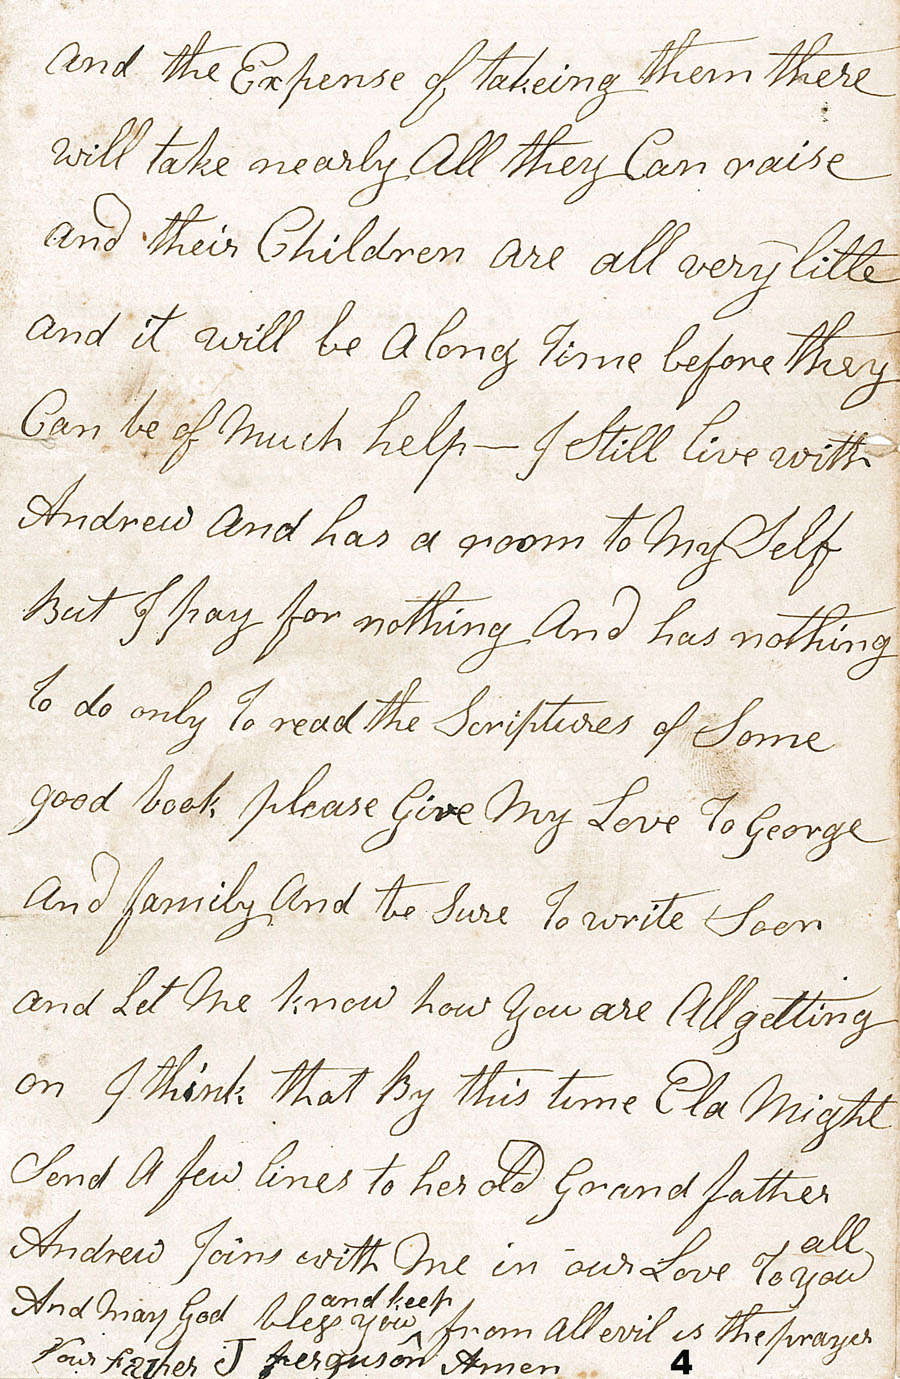 and the Expense of takeing them there
will take nearly All they Can raise
and their Children are all very litle
and it will be A long Time before they
Can be of Much help — I Still live with
Andrew And has a room to My Self
But I pay for nothing And has nothing
To do only To read the Scriptures of Some
good book please Give My Love To George
And family And be Sure To write Soon
and Let Me know how You are All getting
on I think that By this time Ela Might
Send A few lines to her old Grand father
Andrew Joins with Me in our Love To all you
And may God bless you ^ and keep from All evil is the prayer
Your Father J ferguson Amen 4